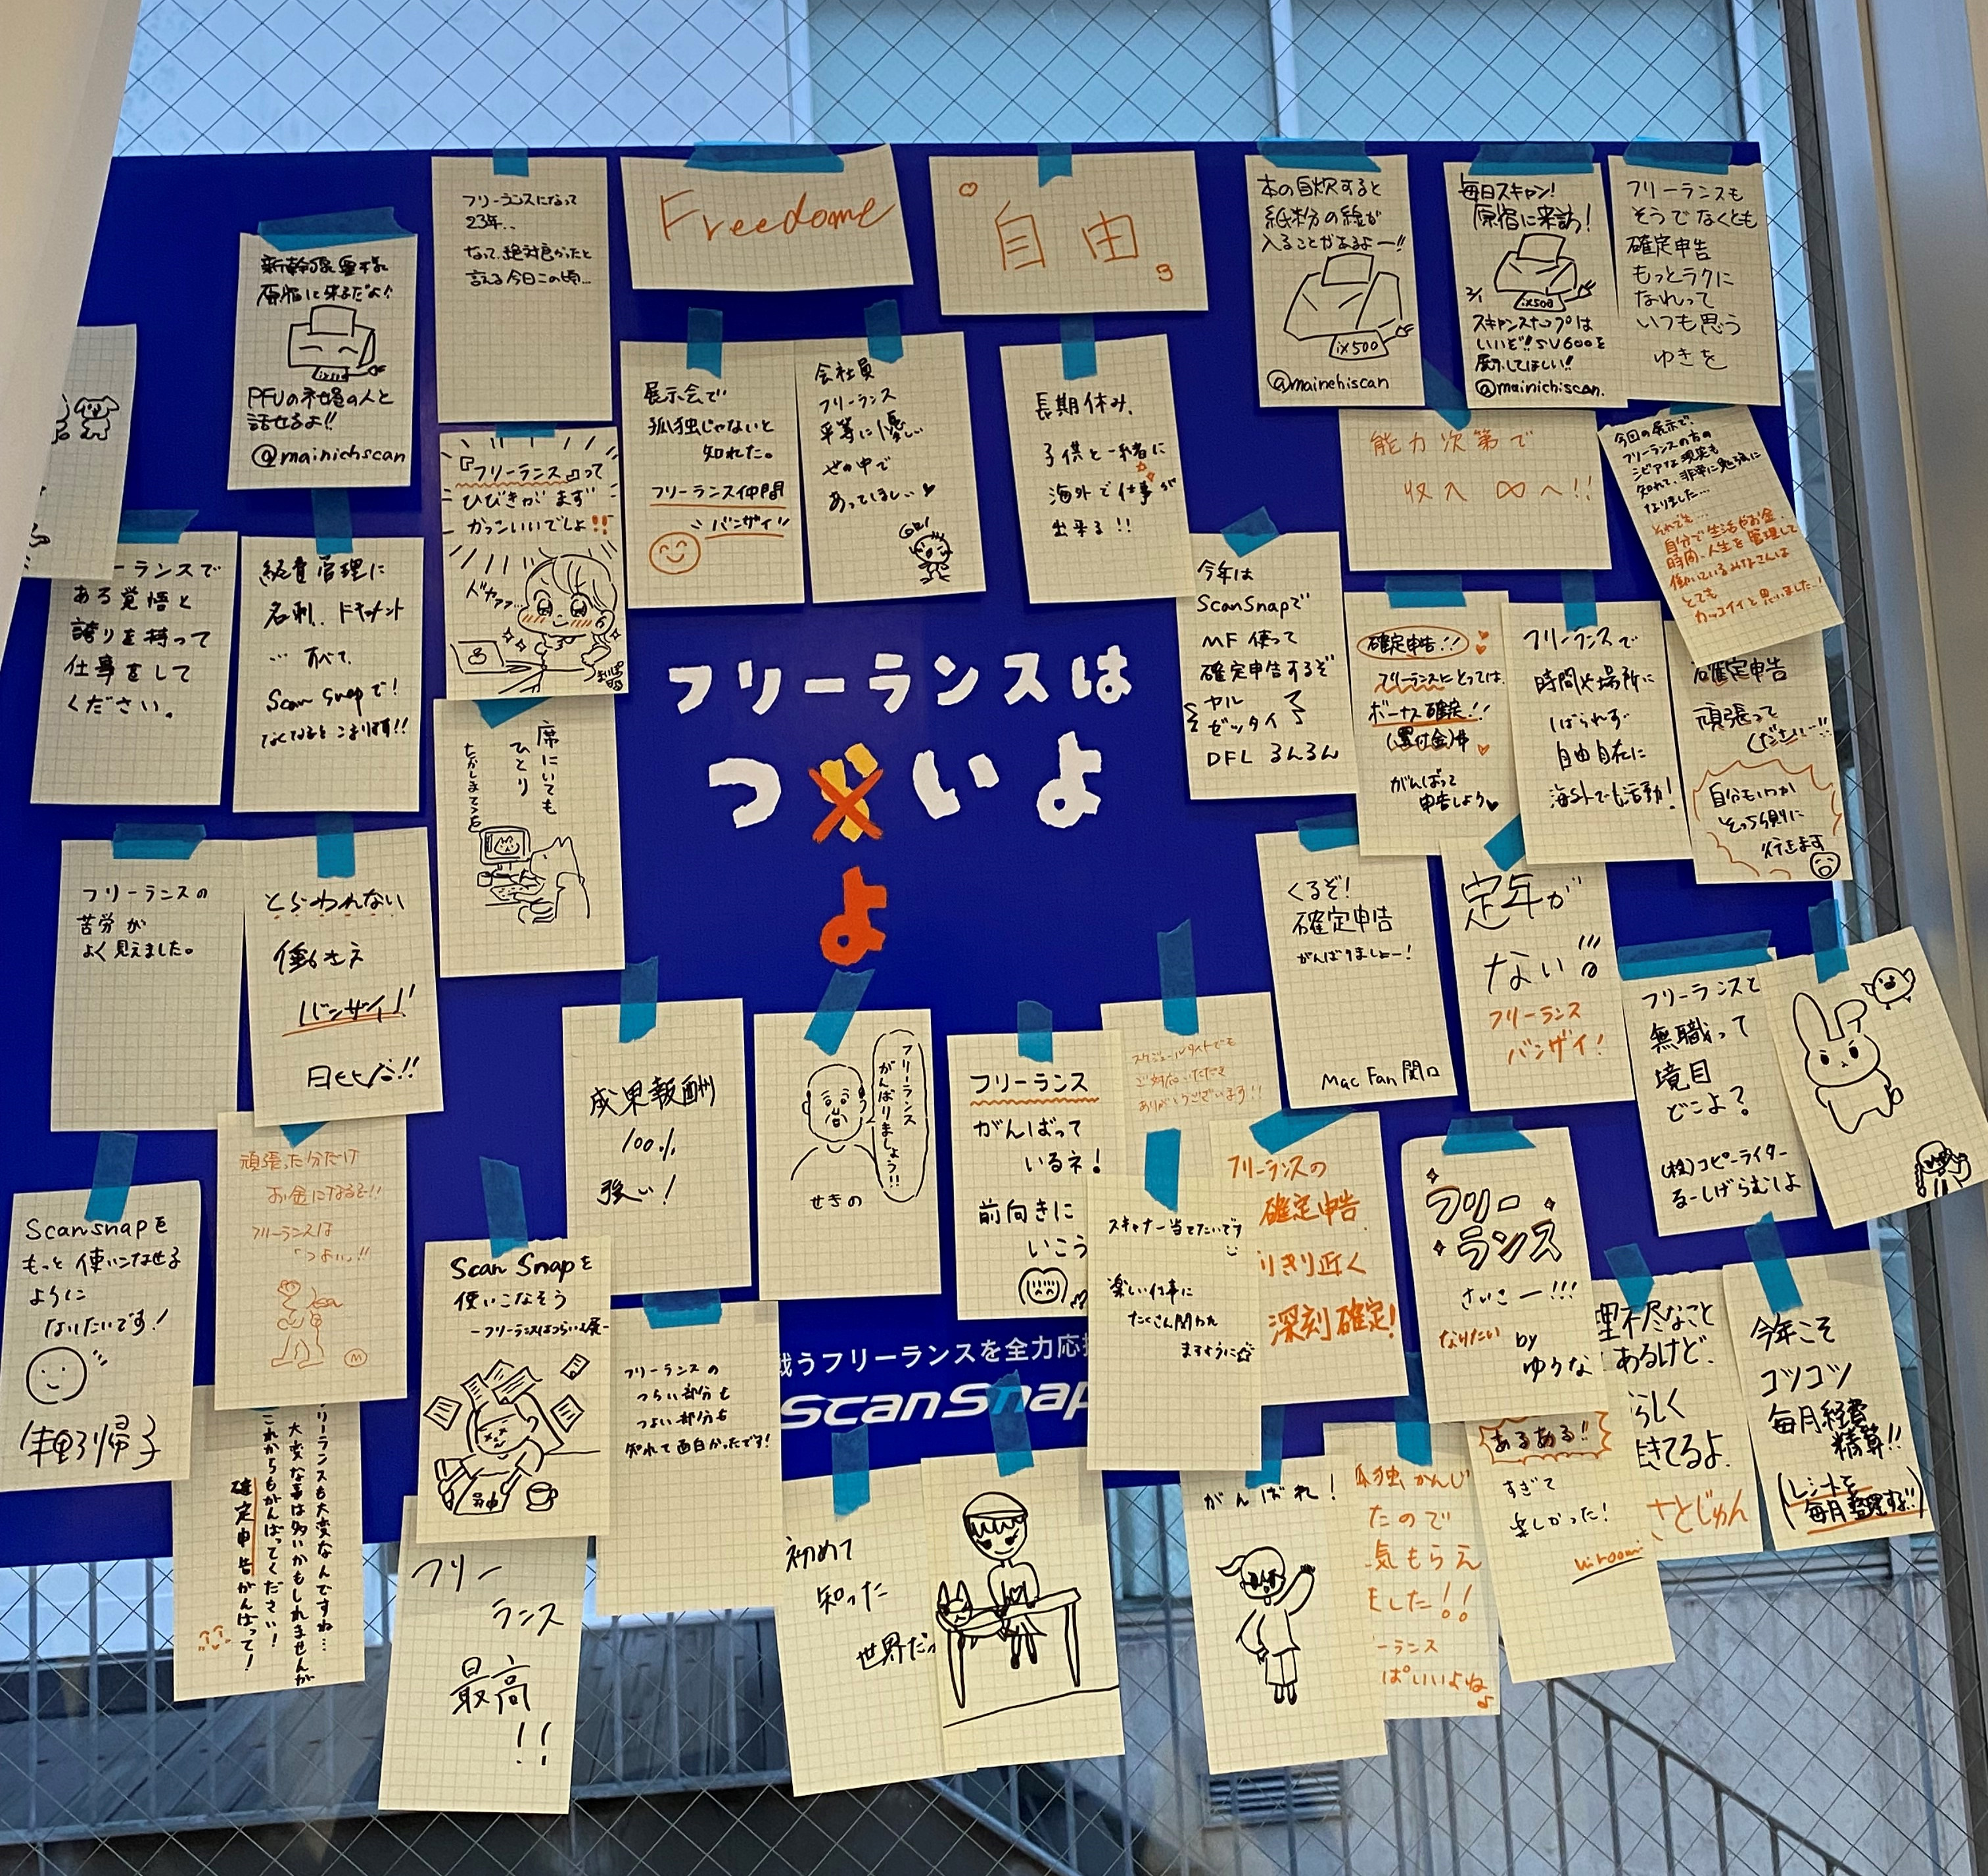 フリーランスになって
23年..
なって、絶対良かったと
言える今日この頃...
Freedome
自由。
本の自炊すると
紙粉の線が
入ることがあるよー!!
ix500
@mainehiscan
毎日スキャン!
原宿に来訪!
ix500
スキャンスナップは
いいぞ!! SV600を
してほしい!!
@mainichiscan.
フリーランスも
そうでなくとも
確定申告
もっとラクに
なれって
いつも思う
ゆきを
原宿に来るだよ!!
PFUの社員の人と
話せるよ!!
@mainichscan
『フリーランス』って
ひびきがまず
かっこいいでしょ!!
ドヤァァ...
展示会で
孤独じゃないと
知れた。
フリーランス仲間
バンザイ!!
会社員
フリーランス
平等に優しい
世の中で
あってほしい♥
長期休み、
子供と一緒に
海外で仕事が
出来る!!
能力次第で
収入 ∞へ!!
今回の展示で、
フリーランスの方の
シビアな現実も
知れて、非常に勉強に
なりました...
それでも...
自分で生活やお金、
時間、人生を管理して
働いているみなさんは
とても
カッコイイと思いました...!
ーランスで
ある覚悟と
誇りを持って
仕事をして
ください。
経費管理に
名刺.. ドキュメント
... すべて、
Scan Snapで!
なくなるとこまります!!
今年は
ScanSnapで
MF 使って
確定申告するぞ
ヤル
ゼッタイ
DFL るんるん
確定申告!!
フリーランスにとっては、
ボーナス確定!!
(還付金)
がんばって
申告しよう♥
フリーランスで
時間や場所に
しばられず
自由自在に
海外でも活動!
確定申告
頑張って
ください...!!
自分もいつか
そっち側に
行きます
フリーランスは
つ いよ
よ
席にいても
ひとり
フリーランスの
苦労が
よく見えました。
とらわれない
働き方
バンザイ!!
くるぞ!
確定申告
がんばりましょー!
Mac Fan 関口
定年が
ない!!
フリーランス
バンザイ!
フリーランスと
無職って
境目
どこよ?
(株)コピーライター
るーしげらむしよ
成果報酬
100%
強い!
フリーランス
がんばりましょう!!
せきの
フリーランス
がんばって
いるネ!
前向きに
いこう
スケジュールタイトでも
ご対応いただき
ありがとうございます!!
頑張った分だけ
お金になるぞ!!
フリーランスは
「つよい」!!
Scansnapを
もっと使いこなせる
ように
なりたいです!
Scan Snapを
使いこなそう
-フリーランスはつらいよ展-
フリーランスの
つらい部分も
つよい部分も
知れて面白かったです!
スキャナー当てたいです
楽しい仕事に
たくさん関われ
ますように☆
フリーランスの
確定申告
りきり近く
深刻確定!
フリー
ランス
さいこー!!!
なりたい by
ゆうな
理不尽なこと
あるけど、
らしく
きてるよ。
さとじゅん
今年こそ
コツコツ
毎月経費
精算!!
(レシートを
毎月整理する!!)
戦うフリーランスを全力応援
ScanSnap
リーランスも大変なんですね...
大変な事は多いかもしれませんが
これからもがんばってください!
確定申告がんばって!
フリー
ランス
最高
!!
初めて
知った
世界だっ
がんばれ!
孤独かんじ
たので
気もらえ
ました!!
ーランス
ぱいいよね♪
あるある!!
すぎて
楽しかった!